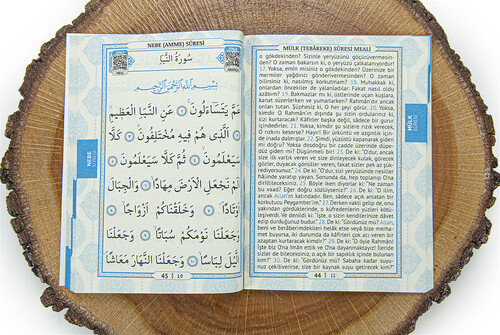 NEBE (AMME) SÛRESİ
سُورَةُ النَّبَأِ
بِسْمِ اللّٰهِ الرَّحْمٰنِ الرَّحِيمِ
عَمَّ يَتَسَاءَلُونَ ﴿١﴾ عَنِ النَّبَأِ الْعَظِيمِ
اَلَّذِي هُمْ فِيهِ مُخْتَلِفُونَ ﴿٣﴾ كَلَّا
سَيَعْلَمُونَ ﴿٤﴾ ثُمَّ كَلَّا سَيَعْلَمُونَ ﴿٥﴾
اَلَمْ نَجْعَلِ الْاَرْضَ مِهَادًا ﴿٦﴾ وَالْجِبَالَ
اَوْتَادًا ﴿٧﴾ وَخَلَقْنَاكُمْ اَزْوَاجًا ﴿٨﴾
وَجَعَلْنَا نَوْمَكُمْ سُبَاتًا ﴿٩﴾ وَجَعَلْنَا
الَّيْلَ لِبَاسًا ﴿١٠﴾ وَجَعَلْنَا النَّهَارَ مَعَاشًا
45 10
NEBE
MÜLK (TEBÂREKE) SÛRESİ MEALİ
o gökdekinden? Sizinle yeryüzünü göçürüvermesin-
den? O zaman bakarsın ki, o yeryüzü çalkalanıyordur!
17. Yoksa, emîn misiniz o gökdekinden? Üzerinize bir
mermiler yağdırıcı gönderivermesinden? O zaman
bilirsiniz ki, nasılmış korkutmam? 18. Muhakkak ki,
onlardan öncekiler de yalanladılar. Fakat nasıl oldu
azâbım? 19. Bakmazlar mı ki, üstlerinde uçan kuşlara,
kanat süzerlerken ve yumarlarken? Rahmân'dır ancak
onları tutan. Şüphesiz ki, O her şeyi görür. 20. Yoksa,
kimdir O Rahmân'ın dışında şu sizin ordularınız ki,
sizi kurtaracak? Kâfirler başka değil, sâdece bir gurur
içindedirler. 21. Yoksa, kimdir şu sizlere rızık verecek,
O rızkını keserse? Hayır! Bir ürküntü ve azgınlık için-
de inada dalmışlar. 22. Şimdi, yüzüstü kapanarak giden
mi doğru? Yoksa dosdoğru bir cadde üzerinde düpe-
düz giden mi? Düşünmeli bir! 23. De ki: "O'dur, ancak
size ilk varlık veren ve size dinleyecek kulak, görecek
gözler; duyacak gönüller veren, fakat sizler pek az şük-
rediyorsunuz." 24. De ki: "O'dur, sizi yeryüzünde nesiller
hâlinde yaratıp yayan. Sonunda da, hep toplanıp O'na
dirileceksiniz. 25. Böyle iken diyorlar ki: "Ne zaman
bu vaad? Eğer doğru söylüyseniz?" 26. De ki: "O ilim,
ancak Allah'ın katindadır. Ben, sâdece açık anlatan bir
korkutucusu Peygamber'im." 27. Derken vakti gelip de, onu
yakından gördüklerinde, o küfredenlerin yüzleri kötü-
leşiverdi. Ve denildi ki: "İşte, o sizin kendilerinize dâvet
edip durduğunuz budur." 28. De ki: "Gördünüz mü? Allah,
beni ve beraberimdekileri helâk etse veya bize merha-
met buyursa, iki durumda da kâfirleri çok acı veren bir
azaptan kurtaracak kimdir?" 29. De ki: "O öyle Rahmân!
İşte biz O'na îmân ettik ve O'na dayanmaktayız! İleride
sizler de bileceksiniz, o açık bir sapıklık içinde bulunan
kim? 30. De ki: "Gördünüz mü? Sabaha kadar suyu-
nuz çekiliverirse, size bir kaynak suyu getirecek kim?"
44 11
MÜLK
SÛRESİ